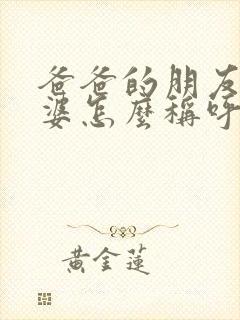 爸爸的朋友
婆怎麼稱呼
黃金蓮